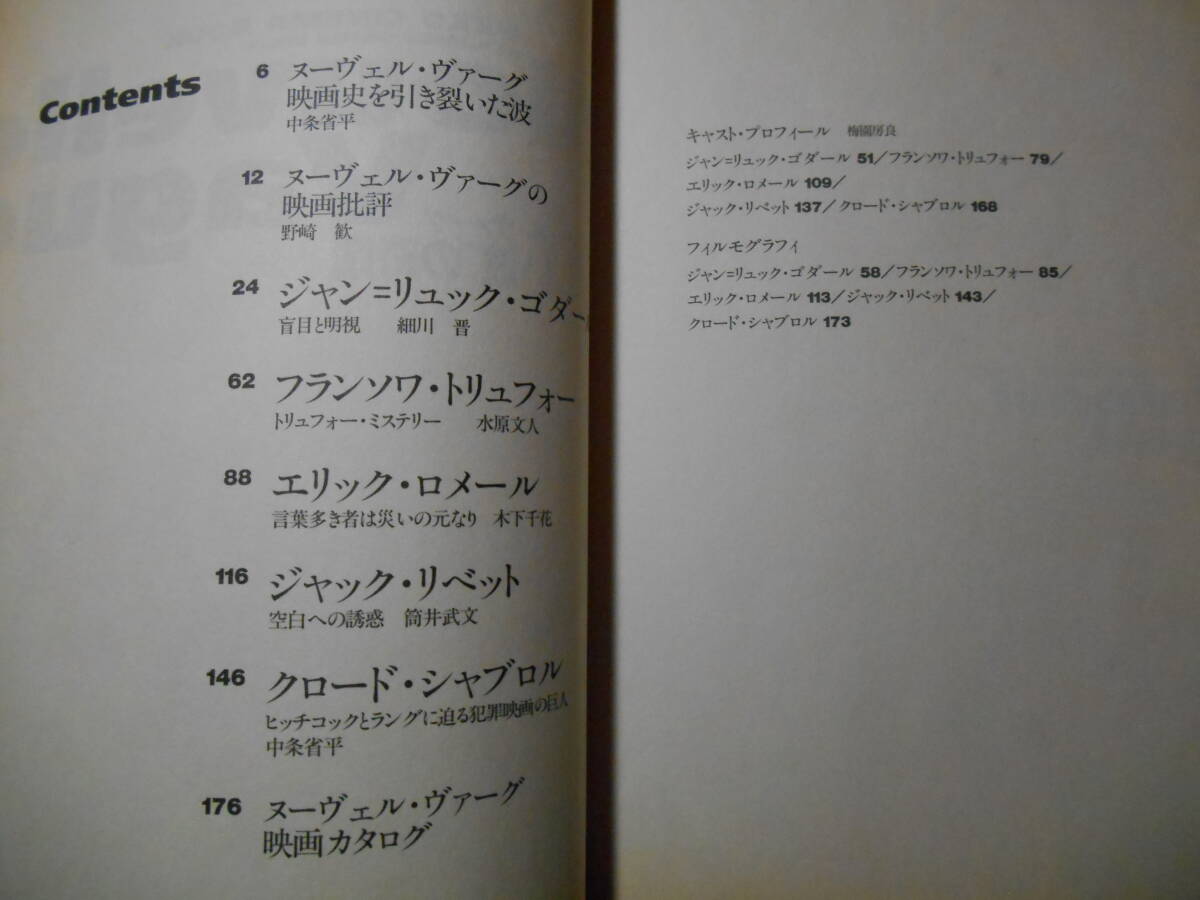 Contents
6 ヌーヴェル・ヴァーグ
映画史を引き裂いた波
中条省平
12 ヌーヴェル・ヴァーグの
映画批評
野崎 歓
24 ジャン=リュック・ゴダー
盲目と明視 細川 晋
62 フランソワ・トリュフォー
トリュフォー・ミステリー 水原文人
88 エリック・ロメール
言葉多き者は災いの元なり 木下千花
116 ジャック・リベット
空白への誘惑 筒井武文
146 クロード・シャブロル
ヒッチコックとラングに迫る犯罪映画の巨人
中条省平
176 ヌーヴェル・ヴァーグ
映画カタログ
キャスト・プロフィール 梅園房良
ジャン=リュック・ゴダール 51/フランソワ・トリュフォー 79/
エリック・ロメール 109/
ジャック・リベット 137/クロード・シャブロル 168
フィルモグラフィ
ジャン=リュック・ゴダール 58/フランソワ・トリュフォー 85/
エリック・ロメール 113/ジャック・リベット 143/
クロード・シャブロル 173